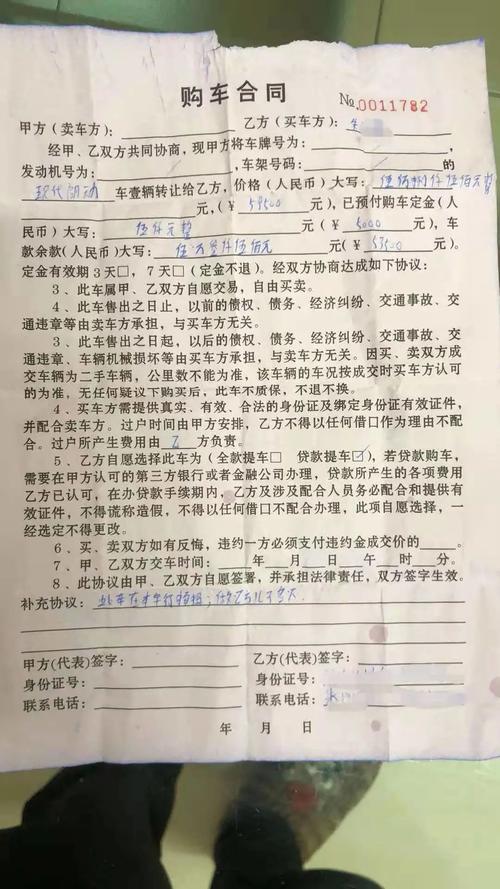 购车合同 № 0011782
甲方（卖车方）： 乙方（买车方）：
经甲、乙双方共同协商，现甲方将车牌号为：
发动机号为： ，车架号码： 的
现代朗动 车壹辆转让给乙方，价格（人民币）大写： 伍
元，（￥ 元），已预付购车定金（人
民币）大写： 伍仟元整 元（￥ 5000 元），车
款余款（人民币）大写： 伍万叁仟伍佰元 元（￥ 53500 元）。
定金有效期3天□，7天□（定金不退）。经双方协商达成如下协议：
3、此车属甲、乙双方自愿交易，自由买卖。
4、此车售出之日止，以前的债权、债务、经济纠纷、交通事故、交
通违章等由卖车方承担，与买车方无关。
3、此车售出之日起，以后的债权、债务、经济纠纷、交通事故、交通
违章、车辆机械损坏等由买车方承担，与卖车方无关。因买、卖双方成
交车辆为二手车辆，公里数不能为准，该车辆的车况按成交时买车方认可
的为准，无任何疑议下购买后，此车不质保，不退不换。
4、买车方需提供真实、有效、合法的身份证及绑定身份证有效证件，
并配合卖车方。过户时间由甲方安排，乙方不得以任何借口作为理由不配
合。过户所产生费用由 乙 方负责。
5、乙方自愿选择此车为（全款提车□ 贷款提车☑），若贷款购车，
需要在甲方认可的第三方银行或者金融公司办理，贷款所产生的各项费用
乙方已认可，在办贷款手续期内，乙方及涉及配合人员务必配合和提供有
效证件，不得谎称造假，不得以任何借口不配合办理，此项自愿选择，一
经选定不得更改。
6、买、卖双方如有反悔，违约一方必须支付违约金成交价的 。
7、甲、乙双方交车时间： 年 月 日 午 时 分。
8、此协议由甲、乙双方自愿签署，并承担法律责任，双方签字生效。
补充协议： 此车在本车行
甲方（代表）签字： 乙方（代表）签字：
身份证号： 身份证号：
联系电话： 联系电话：
年 月 日